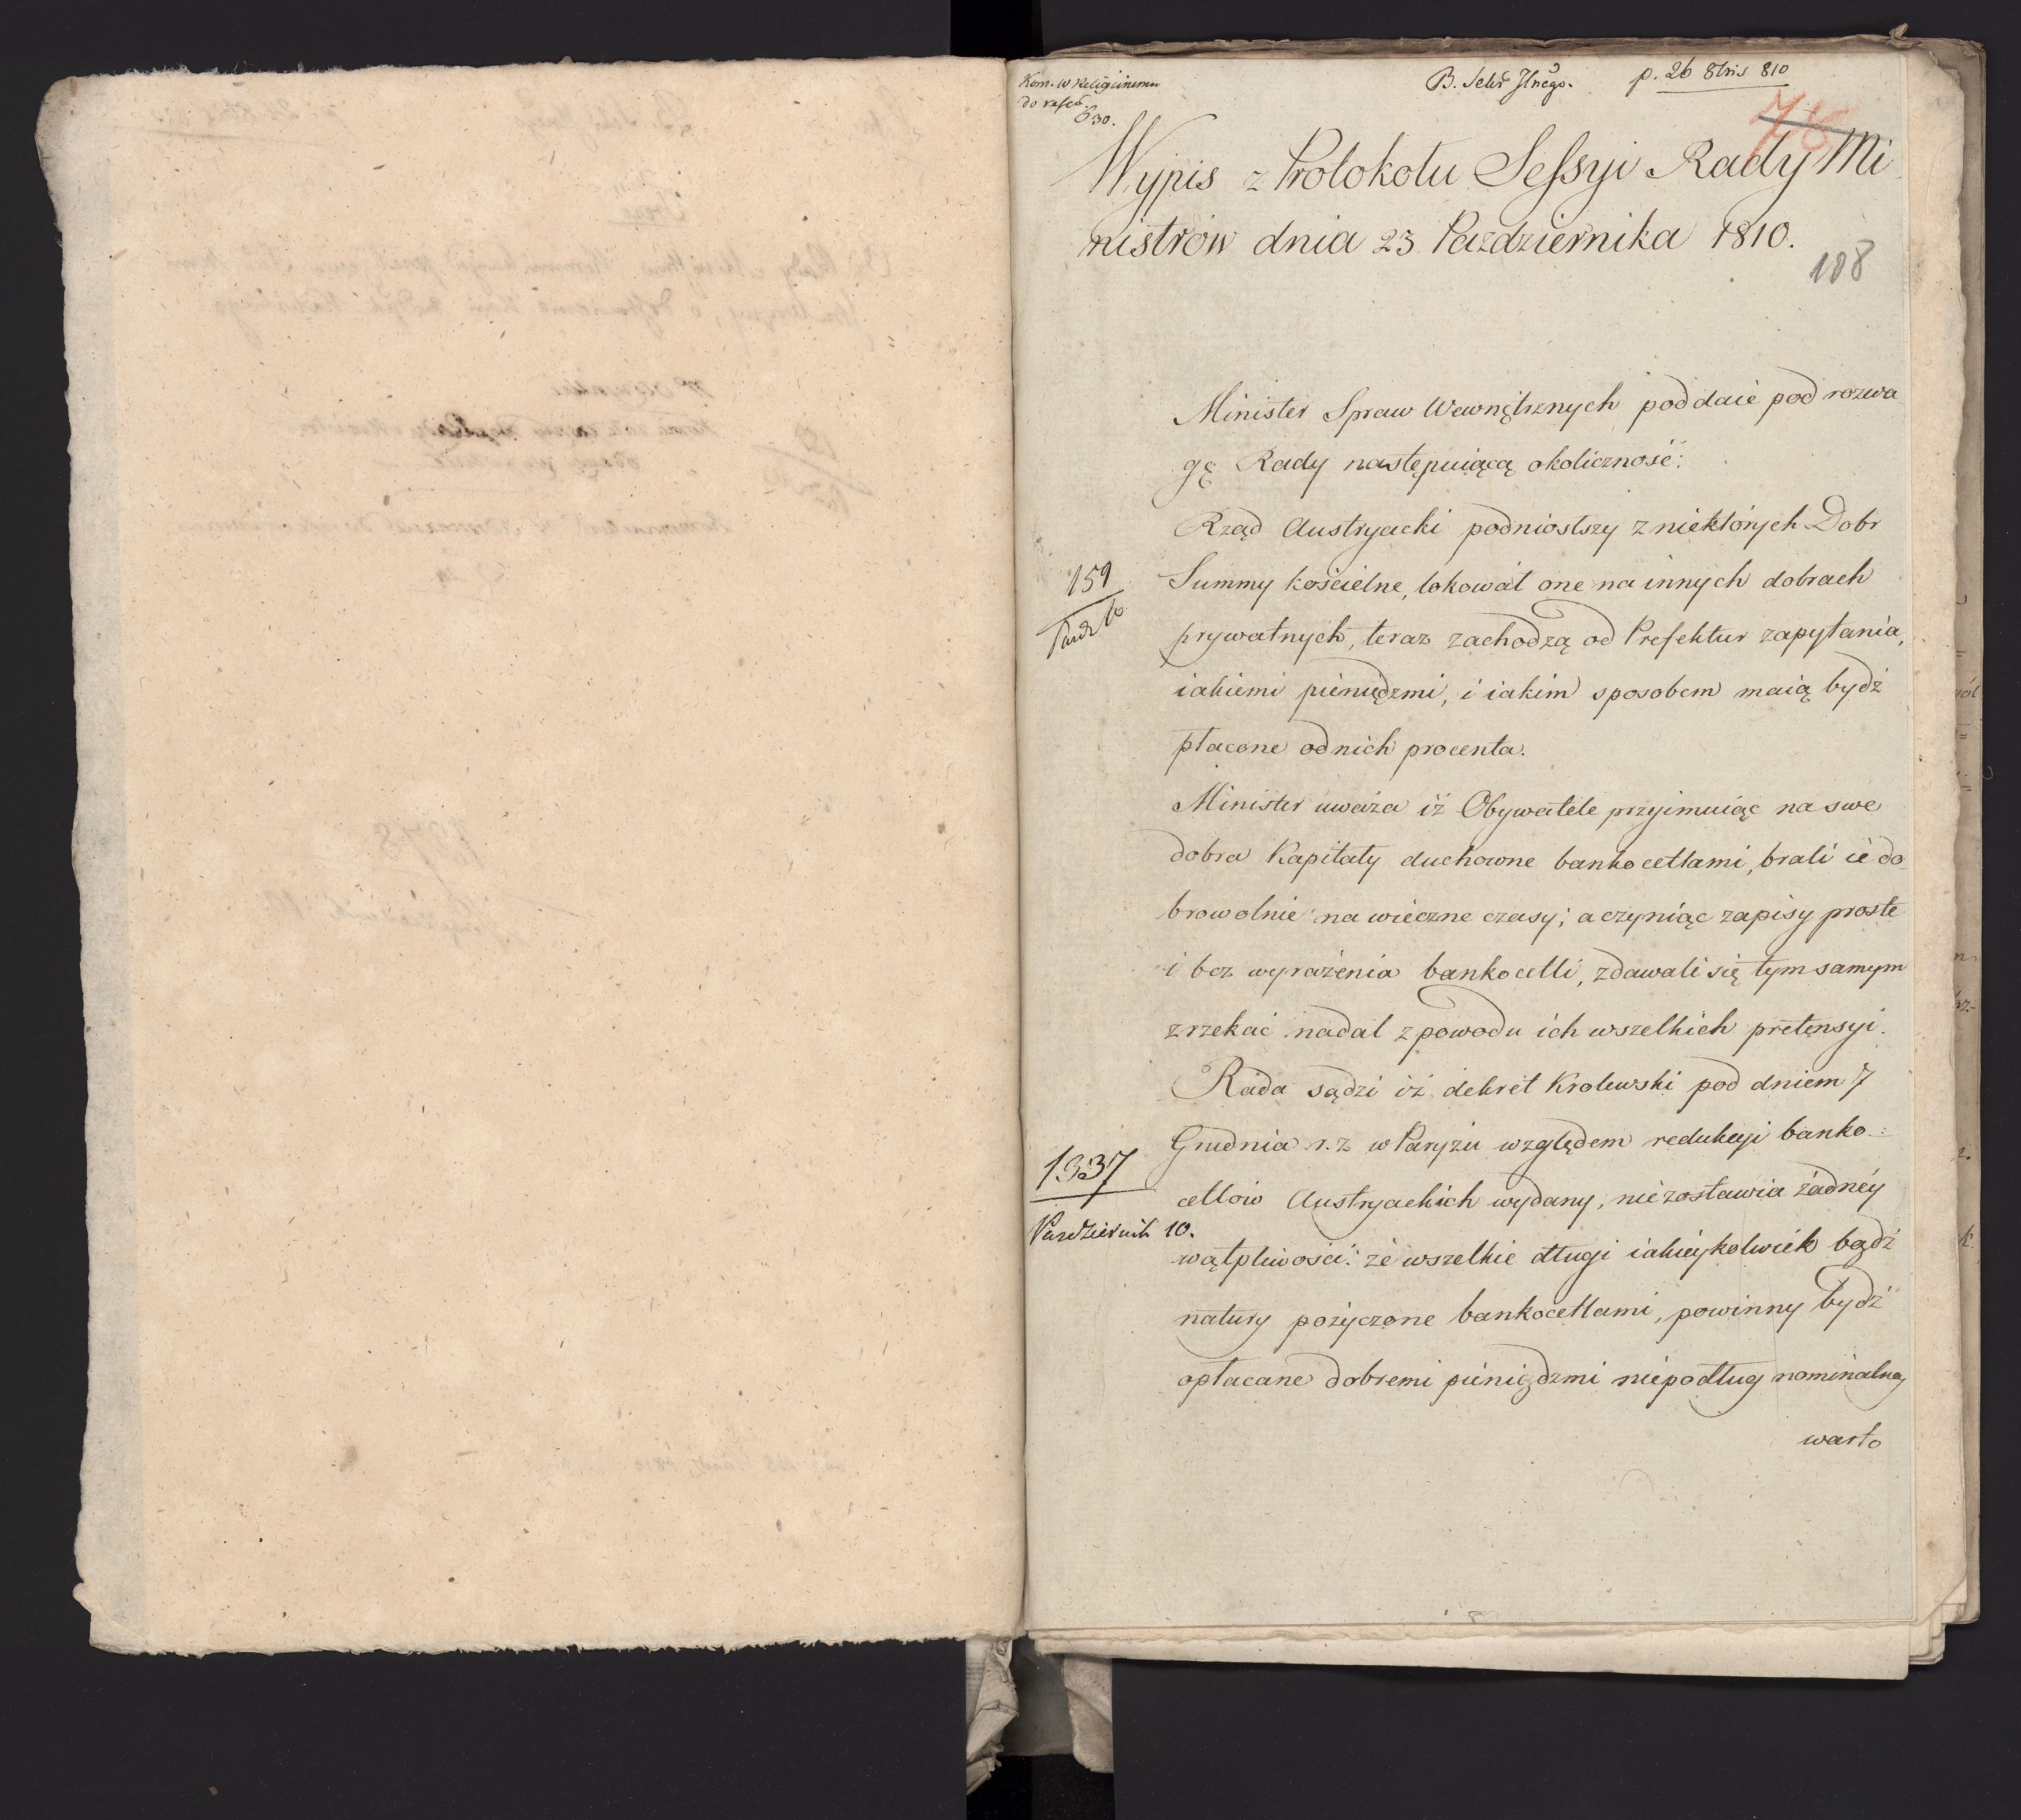 Kom. W Religiinemu
do
630.
B. Sekr Jlnego. p. 26 8bris 810
78
Wypis z Protokołu Sessyi Rady Mi
nistrów dnia 23 Pazdziernika 1810.
188
Minister Spraw Wewnętrznych poddaie pod rozwa
gę Rady następuiącą okoliczność:
Rząd Austryacki podniosłszy z niektórych Dobr
159
Pazdz 10
Summy kościelne, lokował one na innych dobrach
prywatnych, teraz zachodzą od Prefektur zapytania,
iakiemi pieniędzmi, i iakim sposobem maią bydź
płacone od nich procenta.
Minister uważa iż Obywatele przyimuiąc na swe
dobra Kapitały duchowne bankocetlami, brali ie do
browolnie na wieczne czasy; a czyniąc zapisy proste
i bez wyrażenia bankocetli, zdawali się tym samym
zrzekać nadal z powodu ich wszelkich pretensyi.
Rada sądzi iż dekret Krolewski pod dniem 7
Grudnia r. z w Paryżu względem redukcyi banko
1337
Pazdziernik 10.
cetlów Austryackich wydany, nie zostawia żadnéy
wątpliwości: że wszelkie długi iakieykolwiek bądź
natury pożyczone bankocetlami, powinny bydź
opłacane dobremi pieniądzmi nie podług nominalney
warto